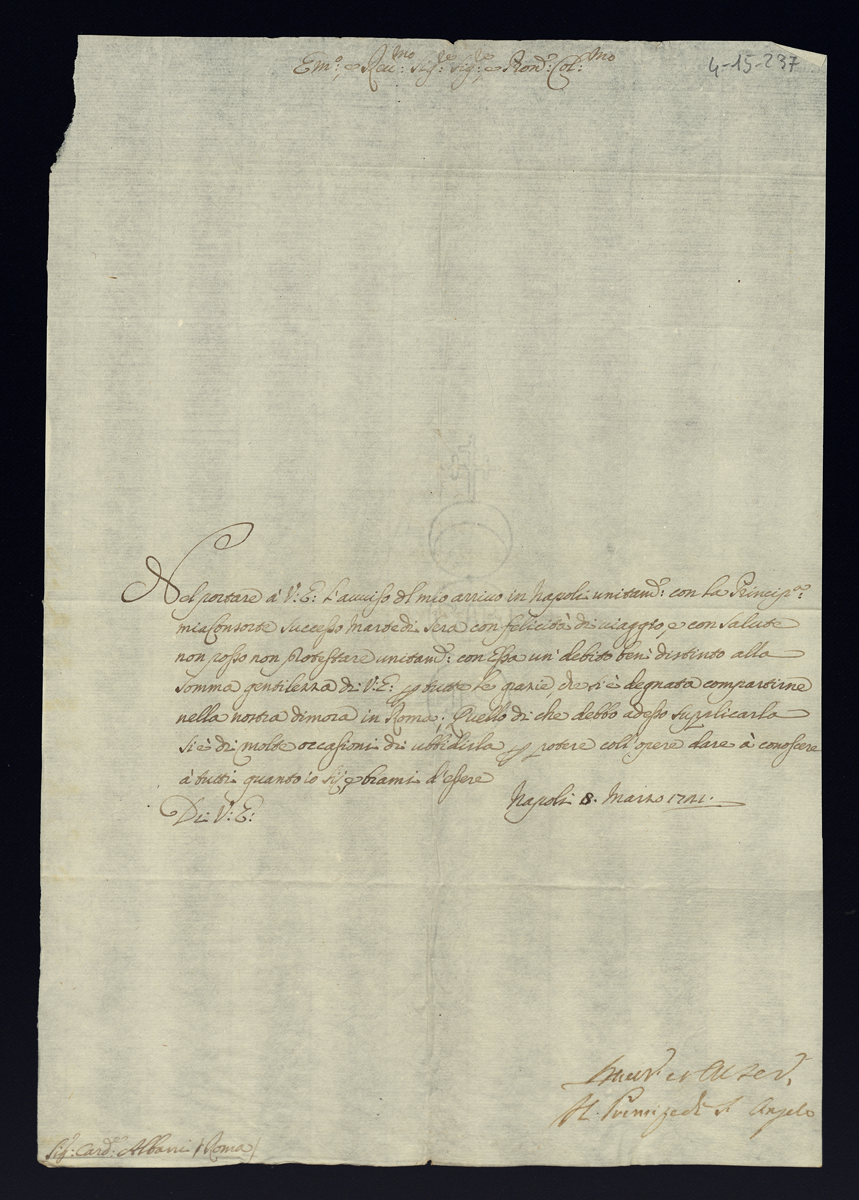 Em.º, e Reu.mo Sig.re Sig.re, e Pron.e Col.mo
4-15-237
Nel portare à V: E: l'auuiso del mio arriuo in Napoli unitam.e con la Princip.a
mia Consorte successo Martedi sera con felicità di uiaggio, e con salute
non posso non protestare unitam.e con Essa un' debito ben' distinto alla
somma gentilezza di V: E: p tutte le grazie, che si è degnata compartirne
nella nostra dimora in Roma; Quello di che debbo adesso supplicarla
si è di molte occasioni di ubbidirla p potere coll' opere dare à conoscere
à tutti quanto io sij, e brami d'essere
Napoli 8. Marzo
Di V: E:
Il Principe di S. Angelo
Sig.r Card.e Albani / Roma /